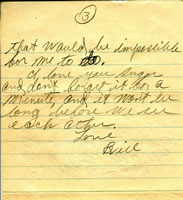 3
that would be impossible
for me to do.
I love you sugar
and don't forget it for a
minute, and it wont be
long before we see
each other.
Love
Bill